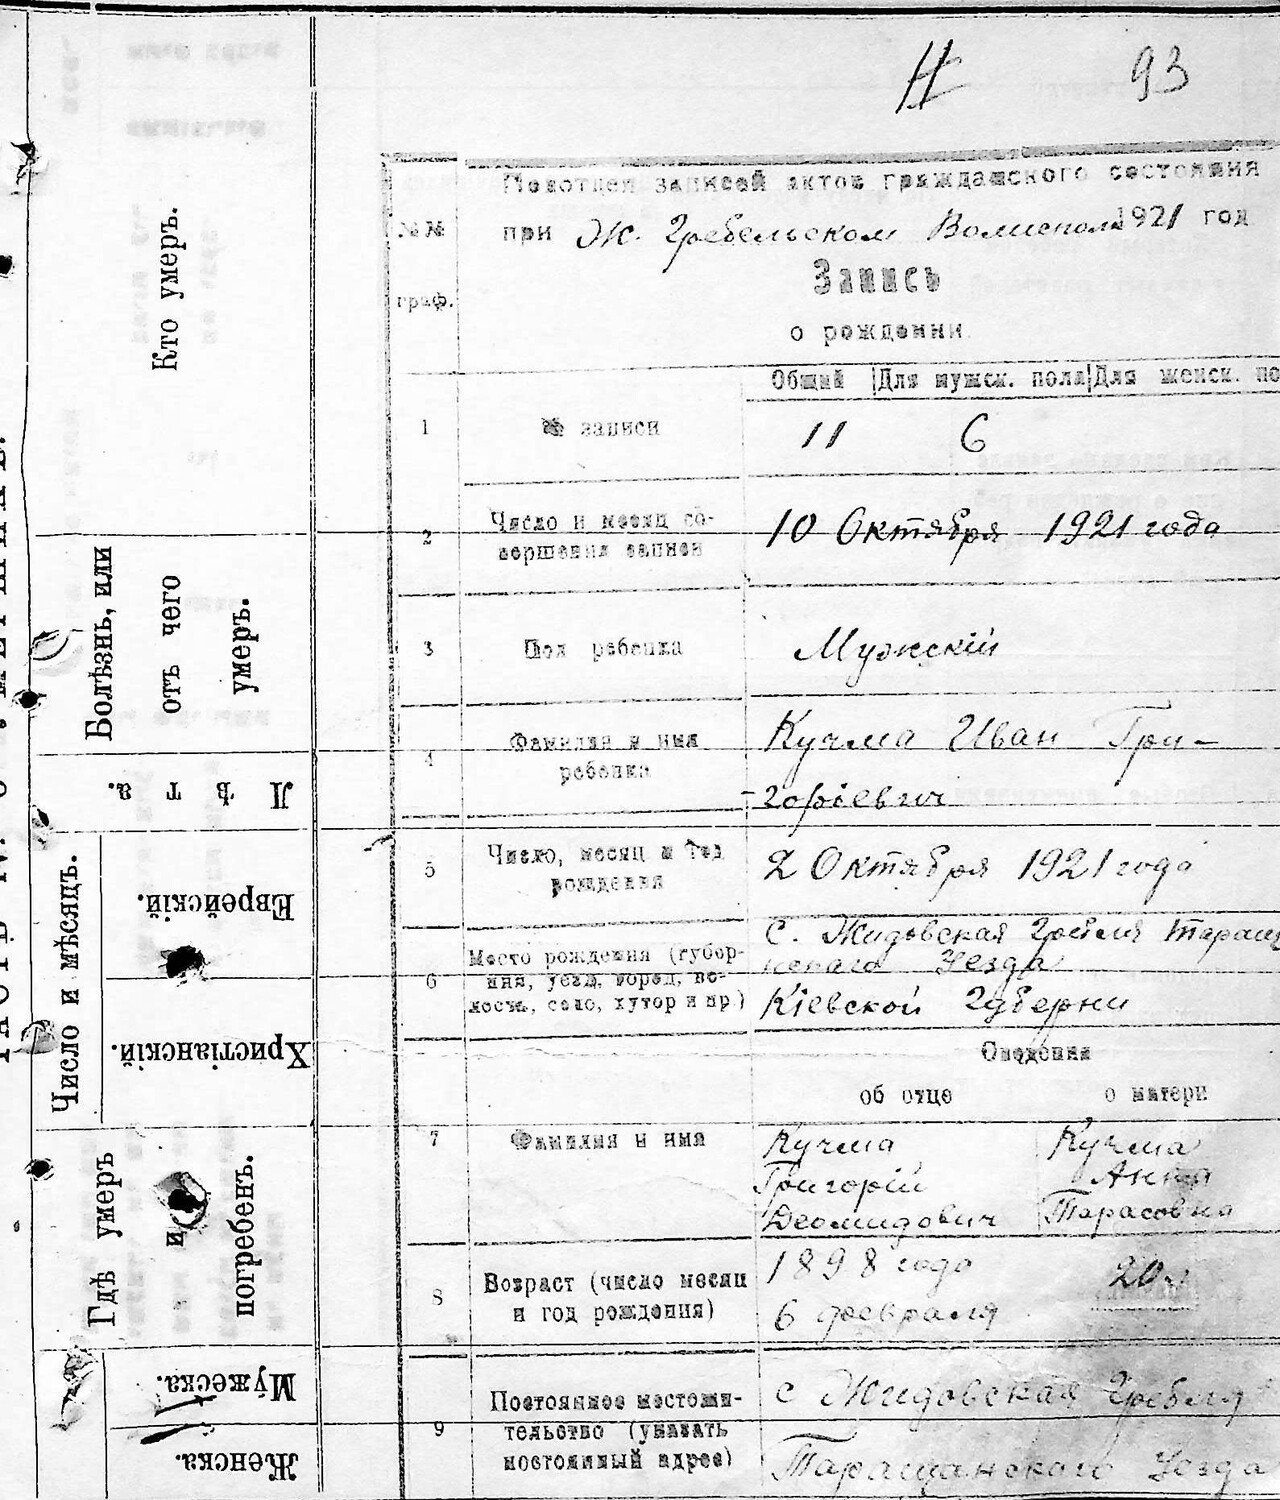 93
записей актов гражданского состояния
№№ граф.
при Ж. Гребельском 1921 год
Запись
о рождении
Общий Для мужск. пола Для женск. по
1 № записи 11 6
2 Число и месяц со-
вершения записи
10 Октября 1921 года
3 Пол ребенка Мужскій
4 Фамилия и имя
ребенка
Кучма Иван Гри-
-горіевич
5 Число, месяц и год
рождения
2 Октября 1921 года
6 Место рождения (губер-
ния, уезд, город, во-
лость, село, хутор и пр.)
С. Жидовская Гребля
Уезда
Кіевской Губерни
Сведения
об отце о матери
7 Фамилия и имя
Кучма Кучма
Григорій Анна
Деомидович Тарасовна
8 Возраст (число месяц
и год рождения)
1898 года 20
6 февраля
9 Постоянное местожи-
тельство (указать
постоянный адрес)
с Жидовская Гребля
Таращанского Уезда
Кто умеръ.
Болѣзнь, или
отъ чего
умеръ.
Лѣта.
Число и мѣсяцъ.
Еврейскій.
Христіанскій.
Гдѣ умеръ
и
погребенъ.
Мужеска.
Женска.